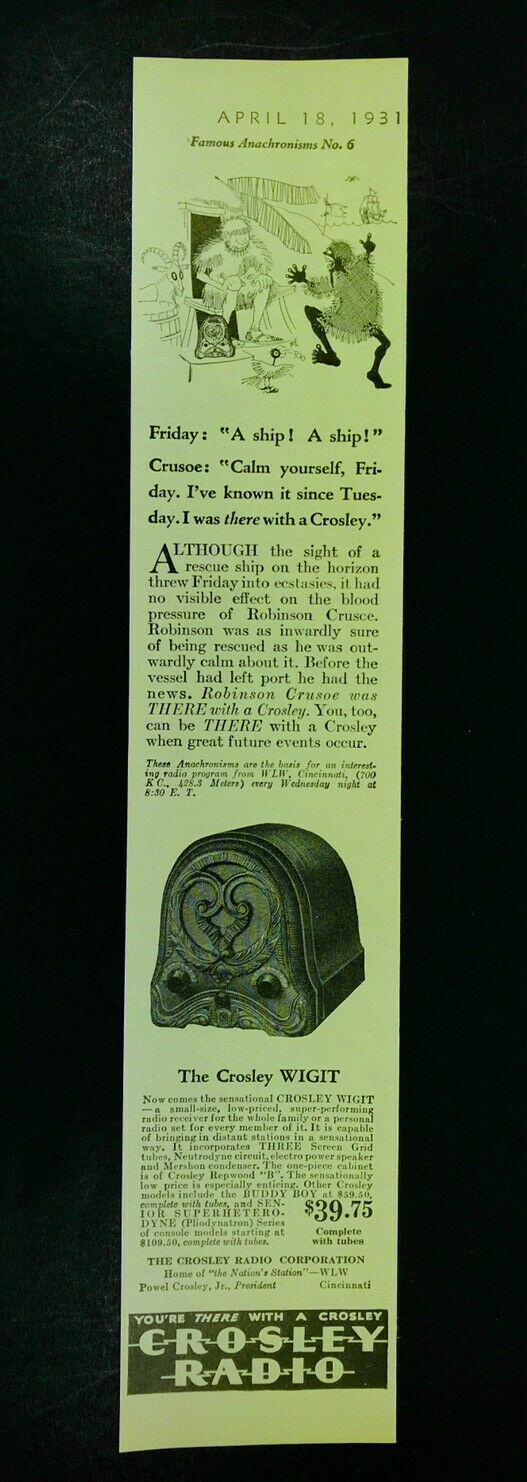 APRIL 18, 1931
Famous Anachronisms No. 6
Friday: "A ship! A ship!"
Crusoe: "Calm yourself, Fri-
day. I've known it since Tues-
day. I was there with a Crosley."
ALTHOUGH the sight of a
rescue ship on the horizon
threw Friday into ecstasies, it had
no visible effect on the blood
pressure of Robinson Crusce.
Robinson was as inwardly sure
of being rescued as he was out-
wardly calm about it. Before the
vessel had left port he had the
news. Robinson Crusoe was
THERE with a Crosley. You, too,
can be THERE with a Crosley
when great future events occur.
These Anachronisms are the basis for an interest-
ing radio program from WLW, Cincinnati, (700
K C., 428.3 Meters) every Wednesday night at
8:30 E. T.
The Crosley WIGIT
Now comes the sensational CROSLEY WIGIT
— a small-size, low-priced, super-performing
radio receiver for the whole family or a personal
radio set for every member of it. It is capable
of bringing in distant stations in a sensational
way. It incorporates THREE Screen Grid
tubes, Neutrodyne circuit, electro power speaker
and Mershon condenser. The one-piece cabinet
is of Crosley Repwood "B". The sensationally
low price is especially enticing. Other Crosley
models include the BUDDY BOY at $59.50,
complete with tubes, and SEN-
IOR SUPERHETERO-
DYNE (Pliodynatron) Series
of console models starting at
$109.50, complete with tubes.
$39.75
Complete
with tubes
THE CROSLEY RADIO CORPORATION
Home of "the Nation's Station"—WLW
Powel Crosley, Jr., President Cincinnati
YOU'RE THERE WITH A CROSLEY
CROSLEY
RADIO